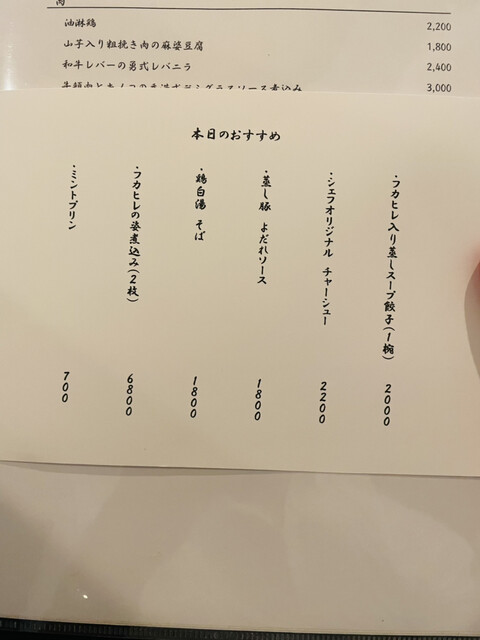 肉
油淋鶏 2,200
山芋入り粗挽き肉の麻婆豆腐 1,800
和牛レバーの勇式レバニラ 2,400
3,000
本日のおすすめ
・フカヒレ入り蒸しスープ餃子(1椀) 2000
・シェフオリジナル チャーシュー 2200
・蒸し豚 よだれソース 1800
・鶏白湯 そば 1800
・フカヒレの姿煮込み(2枚) 6800
・ミントプリン 700